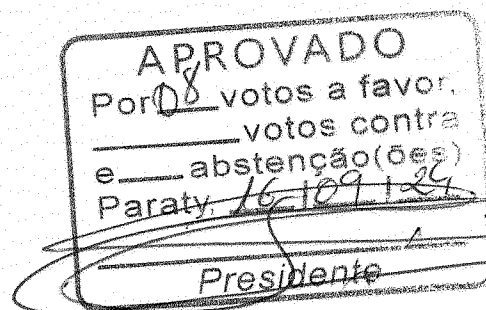 APROVADO
Por 08 votos a favor,
____ votos contra
e ___ abstenção(ões)
Paraty, 16 / 09 / 24
Presidente